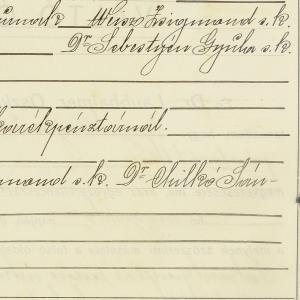 Weisz Zsigmond s. k.
Dr Sebestyén Gyula s. k.
takarékpénztárnál.
mond s. k. Dr Chilkó Sán-